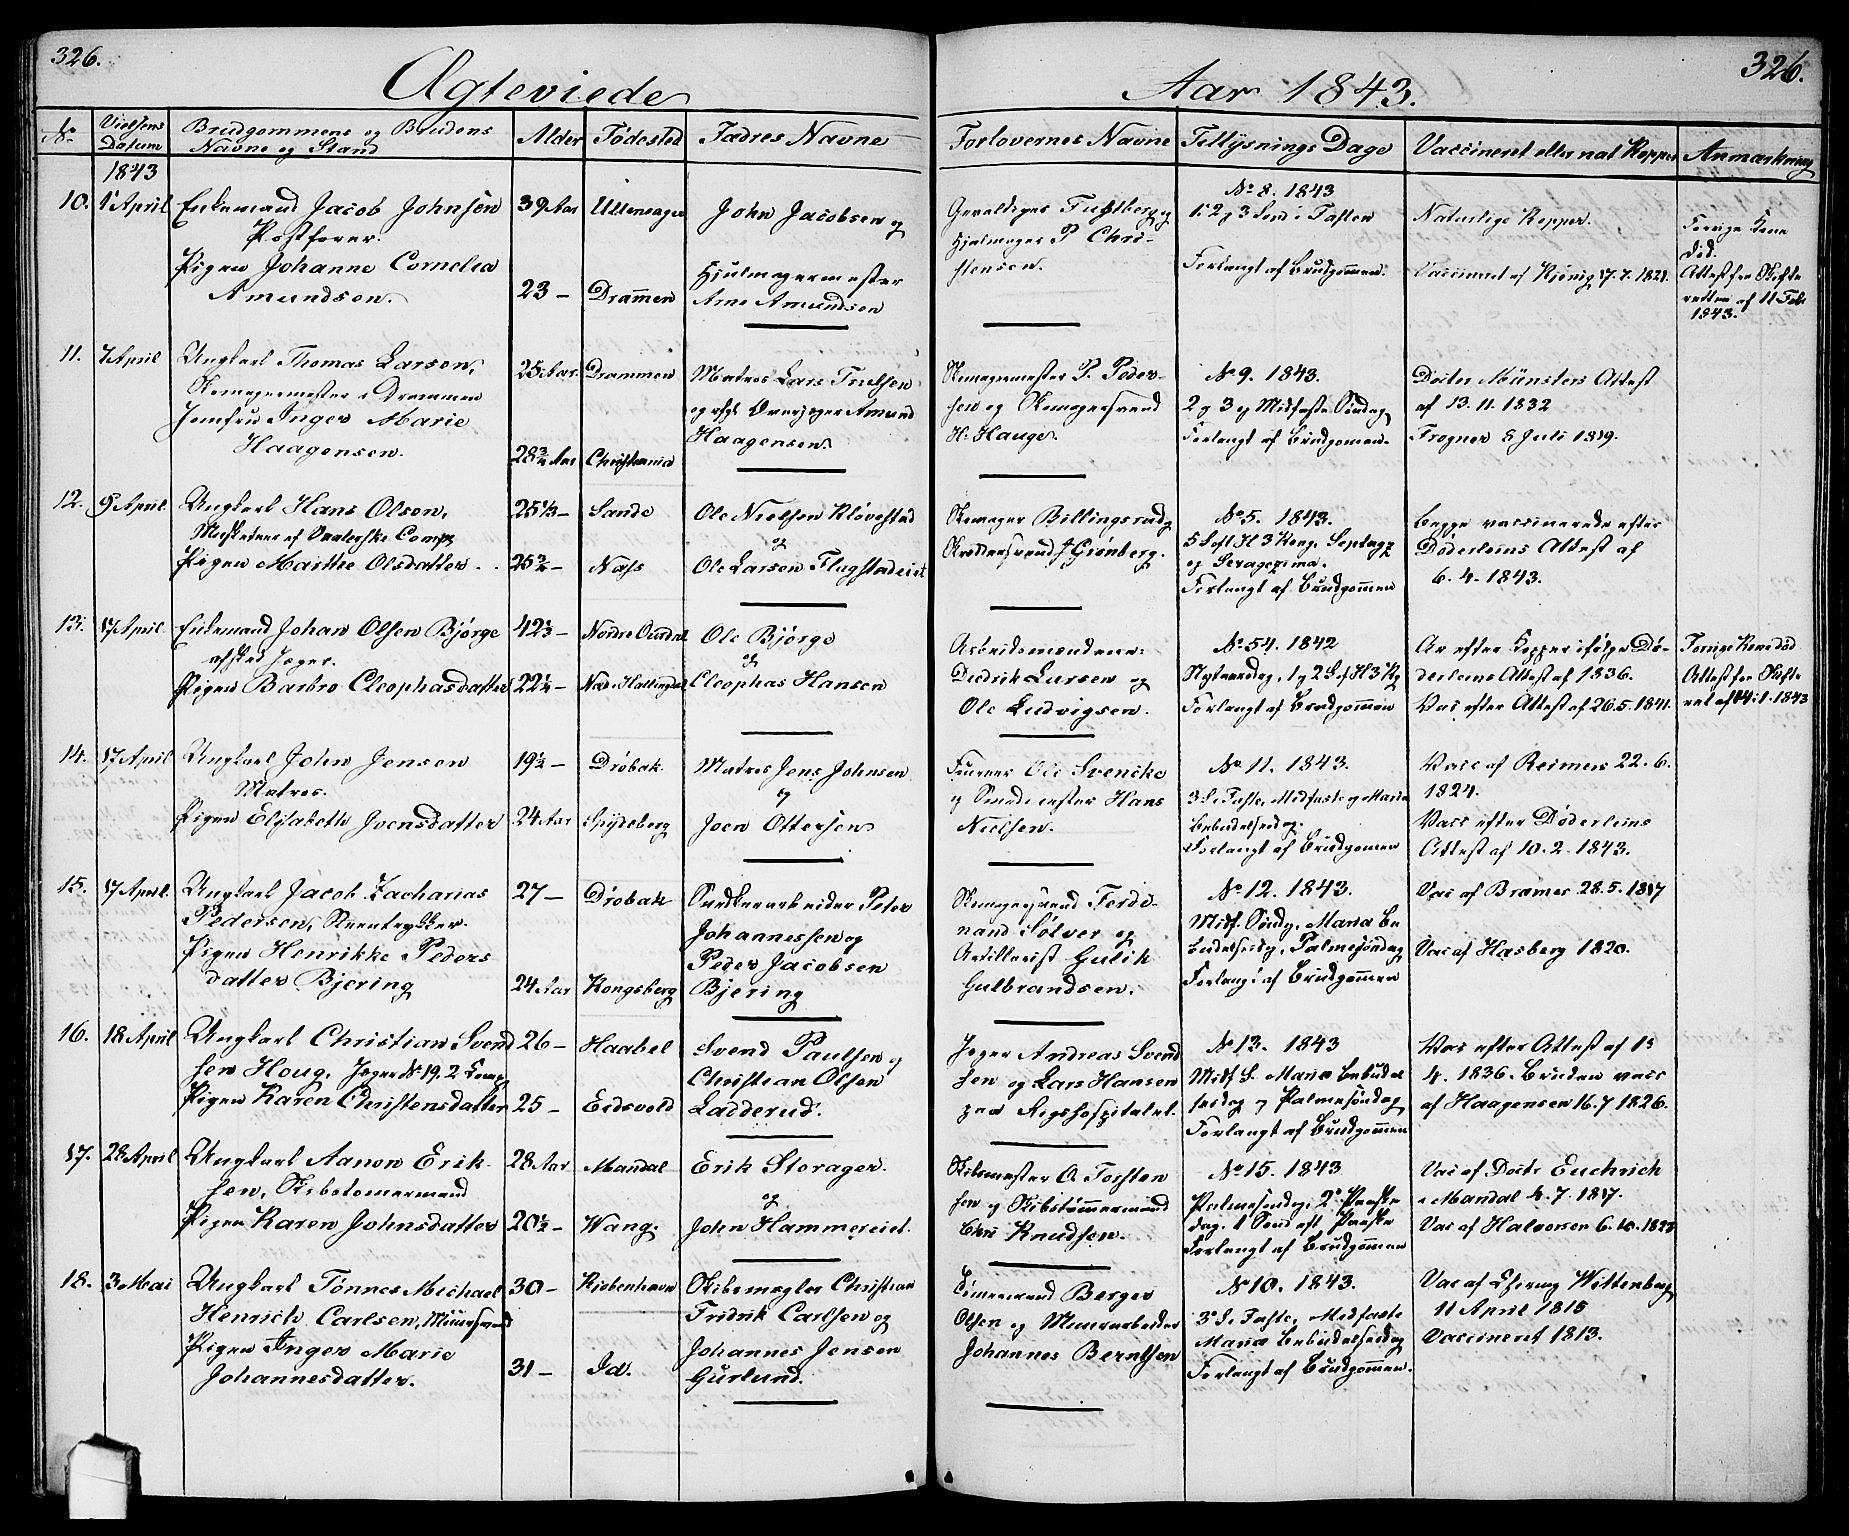 326.
Ægteviede
No
Vielsens Datum
Brudgommens og Brudens Navne og Stand
Alder
Fødested
Fædres Navne
1843
10. 1 April Enkemand Jacob Johnsen 39 Aar Ullensager John Jacobsen og
Postfører.
Pigen Johanne Cornelia Hjulmagermester
Amundsen. 23 — Drammen Arne Amundsen
11. 7 April Ungkarl Thomas Larsen, 25 Aar. Drammen Matros Lars Truelsen
Skomagermester i Drammen og afg. Overjæger Amund
Jomfru Inger Marie Haagensen
Haagensen. 28 3/4 Aar Christiania
12. 9 April Ungkarl Hans Olsen, 25 1/3 — Sande Ole Nielsen Kløvestad
Musketeer af Comp og
Pigen Marthe Olsdatter. 25 3/4 — Næss Ole Larsen Flugstadeiet
13. 17 April Enkemand Johan Olsen Bjørge 42 1/2 — Nordre Ole Bjørge
afsked Jæger. og
Pigen Barbro Cleophasdatter 22 1/2 — Næs Hallingdal Cleophas Hansen
14. 17 April Ungkarl John Jensen 19 1/2 — Drøbak Matros Jens Johnsen
Matros. og
Pigen Elisabeth Joensdatter 24 Aar Spydeberg Joen Ottersen
15. 17 April. Ungkarl Jacob Zacharias 27 — Drøbak Peter
Pedersen, Johannessen og
Pigen Henrikke Peders Peder Jacobsen
datter Bjering 24 Aar Kongsberg Bjering
16. 18 April Ungkarl Christian Svend 26 — Haabøl Svend Paulsen og
sen Houg, Jæger No 19, 2 Comp Christian Olsen
Pigen Karen Christensdatter 25 — Eidsvold Ladderud.
17. 28 April Ungkarl Aanon Erik- 28 Aar Mandal Erik Storager.
sen, Skibstømermand og
Pigen Karen Johnsdatter 20 1/2 — Wang. John Hammereiet.
18. 3 Mai Ungkarl Tønnes Michael 30 — Kiøbenhavn Skibsmægler Christian
Henrich Carlsen, Muursvend Fridrik Carlsen og
Pigen Inger Marie Johannes Jensen
Johannesdatter. 31 — Id. Gurlund.
326.
Aar 1843.
Forlovernes Navne
Tillysnings Dage
Vaccineret eller nat Kopper
Anmærkning
No 8. 1843
Gevaldiger og 1. 2 og 3 Sønd i Fasten Naturlige Kopper. Forrige Kone
Hjulmager P. Chri- død.
stensen. Forlangt af Brudgommen. Vaccineret af 17.7.1821. Attest fra Skifte
retten af 11 Feb
1843.
Skomagermester P. Peder- No 9. 1843. Docter Münsters Attest
sen og Skomagersvend 2 og 3 og Midfaste Søndag af 13.11.1832
H. Hauge. Forlangt af Brudgomen. Frogner 8 Juli 1819.
Skomager Billingsrud og No 5. 1843. Begge vaccinerede efter
Grønberg. 5 Søst H 3 Kong. Septuag Døderleins Attest af
og Sexagesima. 6.4.1843.
Forlangt af Brudgommen
Arbeidsmændene No 54. 1842 Ar efter Kopper ifølge Dø- Forrige Kone død
Diedrik Larsen og Nytaarsdag, 1 og 2 S. ef H 3 K derleins Attest af 1836. Attest fra Skifte
Ole Ludvigsen. Forlangt af Brudgommen Vac efter Attest af 26.5.1841. ret af 14.1.1843
Ole Svencke No 11. 1843. Vacc af Reimers 22.6.
og Smedmester Hans 3 S. i Faste, Midfaste og Maria 1824.
Nielsen. Bebudelsesdag. Vacc efter Døderleins
Forlangt af Brudgomen Attest af 10.2.1843.
Skomagersvend Ferdi- No 12. 1843. Vac af Brames 28.5.1817
nand Sølver og Midf. Søndg, Maria Be
Artillerist Gulik budelsesdg, Palmesøndag Vac af Hasberg 1820.
Gulbrandsen. Forlangt af Brudgommen
Jæger Andreas Svend No 13. 1843 Vac efter Attest af 13
sen og Lars Hansen Midf S. Maria Bebudel 4. 1836. Bruden vacc
paa Rigshospitalet. sesdag og Palmesøndag af Haagensen 16.7 1826.
Forlangt af Brudgommen
Skibsmester O. Torsten No 15. 1843 Vac af Doctr Euchrich
sen og Skibstømmermand Palmesøndg, 2 Paaske i Mandal 4.7.1817.
Chri Knudsen. dag. 1 Sønd eft Paaske Vac af Halvorsen 6.10.
Forlangt af Brudgommen
Tømermand Berger No 10. 1843. Vac af Wittenberg
Olsen og Muurarbeider 3 S. i Faste, Midfaste 11 April 1815
Johannes Berntsen Mariæ Bebudelsesdag Vaccineret 1813.
Forlangt af Brudgommen.